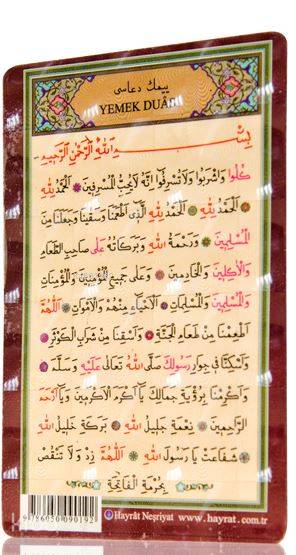 ييمك دعاسى
YEMEK DUÂSI
بِسْمِ اللهِ الرَّحْمٰنِ الرَّحِيمِ
كُلُوا وَاشْرَبُوا وَلَا تُسْرِفُوا اِنَّهُ لَا يُحِبُّ الْمُسْرِفِينَ ❁ اَلْحَمْدُ لِلّٰهِ
اَلْحَمْدُ لِلّٰهِ ❁ اَلْحَمْدُ لِلّٰهِ الَّذِى اَطْعَمَنَا وَسَقَينَا وَجَعَلَنَا مِنَ
الْمُسْلِمِينَ ❁ وَرَحْمَةُ اللهِ وَبَرَكَاتُهُ عَلَى صَاحِبِ الطَّعَامِ
وَالْاٰكِلِينَ وَالْخَادِمِينَ ❁ وَعَلَى جَمِيعِ الْمُؤْمِنِينَ وَالْمُؤْمِنَاتِ
وَالْمُسْلِمِينَ وَالْمُسْلِمَاتِ ❁ اَلْاَحْيَاءِ مِنْهُمْ وَالْاَمْوَاتِ ❁ اَللّٰهُمَّ
اَطْعِمْنَا مِنْ طَعَامِ الْجَنَّةِ ❁ وَاَسْقِنَا مِنْ شَرَابِ الْكَوْثَرِ ❁
وَاَسْكِنَّا فِى جِوَارِ رَسُولِكَ صَلَّى اللهُ تَعَالَى عَلَيْهِ وَسَلَّمَ ❁
وَاَكْرِمْنَا بِرُؤْيَةِ جَمَالِكَ يَا اَكْرَمَ الْاَكْرَمِينَ وَيَا اَرْحَمَ
الرَّاحِمِينَ ❁ نِعْمَةِ جَلِيلُ اللهِ ❁ بَرَكَةِ خَلِيلُ اللهِ
شَفَاعَتْ يَا رَسُولَ اللهِ ❁ اَللّٰهُمَّ زِدْ وَلَا تَنْقُصْ
بِحُرْمَةِ الْفَاتِحَةِ
9786050090192
Hayrât Neşriyat www.hayrat.com.tr